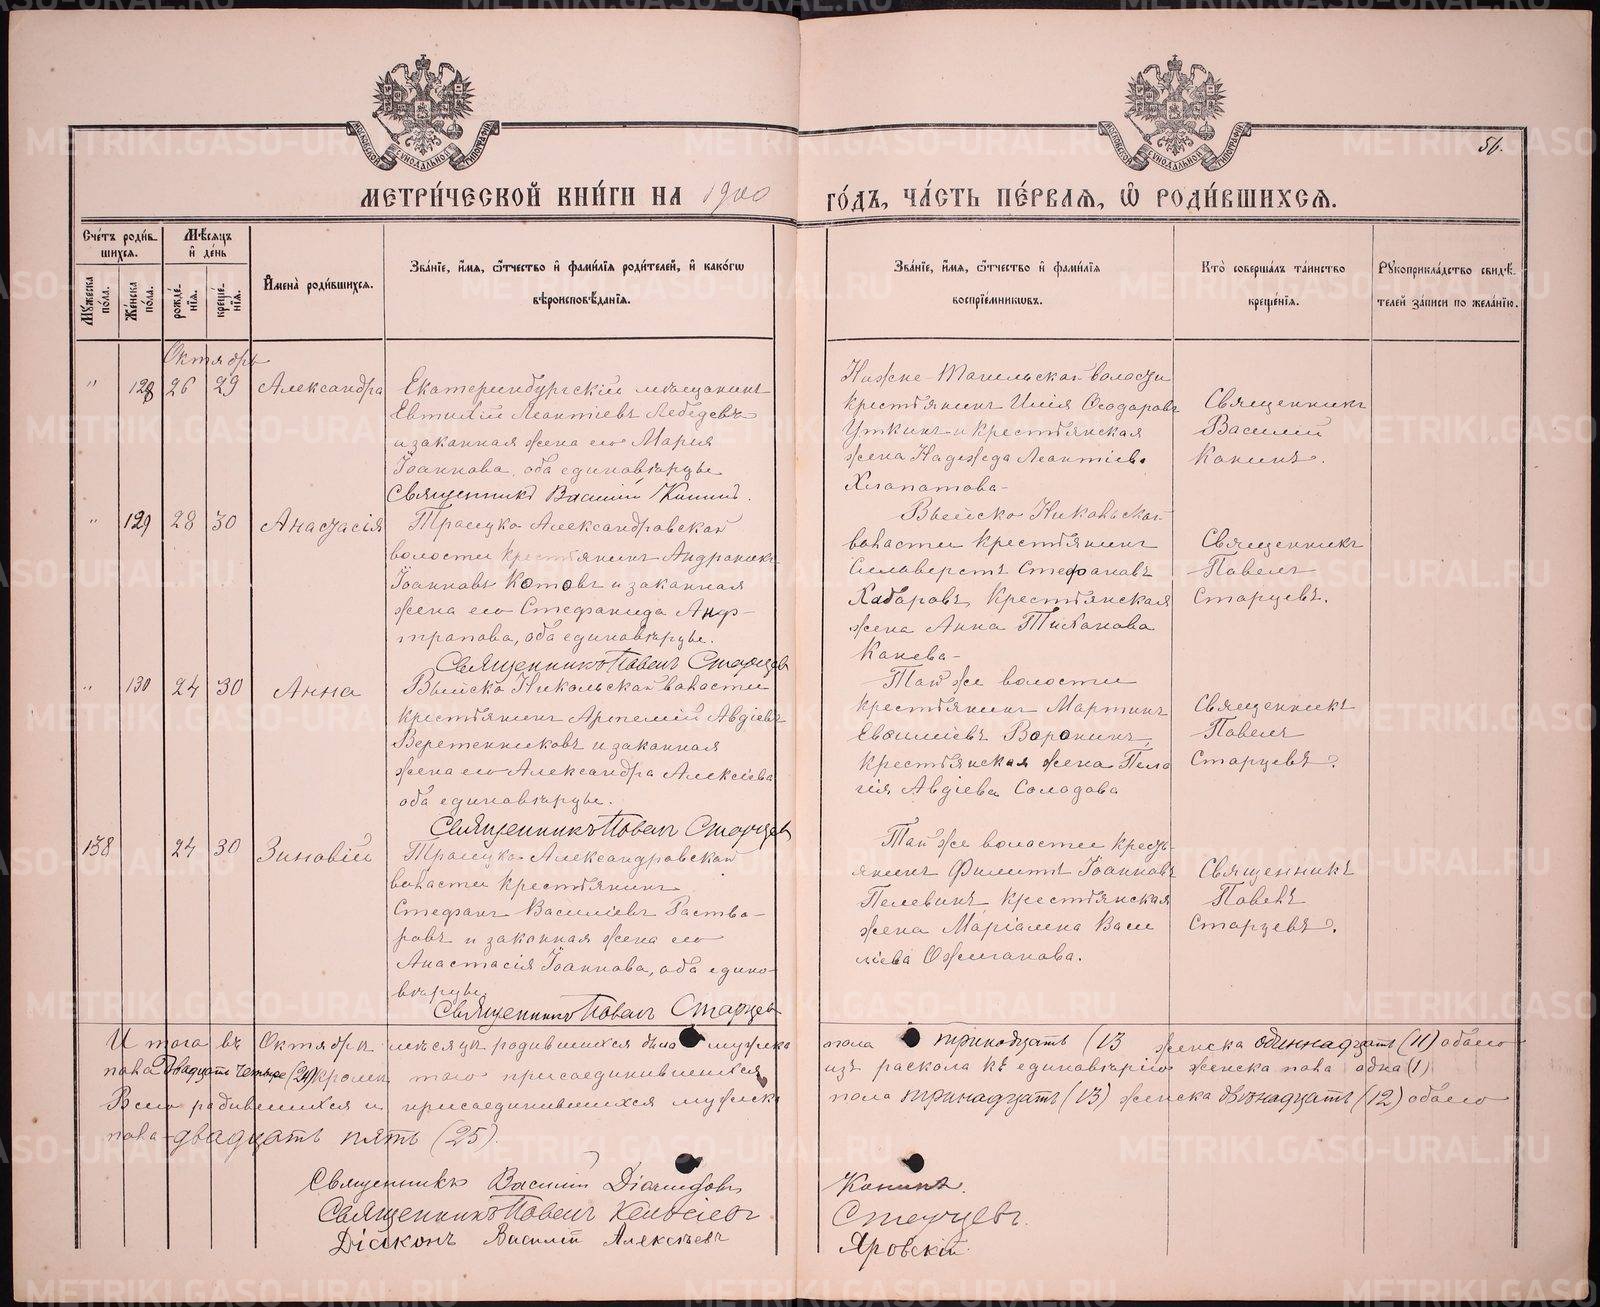 МОСКОВСКОЙ СѴНОДАЛЬНОЙ ТИПОГРАФІИ
МОСКОВСКОЙ СѴНОДАЛЬНОЙ ТИПОГРАФІИ
56.
МЕТРИ́ЧЕСКОЙ КНИ́ГИ НА 1900
ГО́ДЪ, ЧА́СТЬ ПЕ́РВАѦ, Ѡ҆ РОДИ́ВШИХСѦ.
Сче́тъ роди́в-
шихсѧ.
Мꙋ́жеска по́ла.
Же́нска по́ла.
Мѣ́сѧцъ
и҆ де́нь
рожде́-нїѧ.
креще́-нїѧ.
И҆мена̀ роди́вшихсѧ.
Зва́нїе, и҆́мѧ, ѻ҆́тчество и҆ фами́лїѧ роди́телей, и҆ како́гѡ
вѣроисповѣ́данїѧ.
Зва́нїе, и҆́мѧ, ѻ҆́тчество и҆ фами́лїѧ
воспрїе́мникѡвъ.
Кто̀ соверша́лъ та́инство
креще́нїѧ.
Рꙋкоприкла́дство свидѣ́-
телей за́писи по жела́нїю.
Октябрь
" 128 26 29 Александра
Екатеринбургскій мѣщанинъ
Евтихій Леонтіевъ Лебедевъ
и законная жена его Марія
Іоаннова, оба единовѣрцы.
Священникъ Василій Конинъ.
Нижне-Тагильской волости
крестьянинъ Илія Ѳеодоровъ
Уткинъ и крестьянская
жена Надежда Леонтіева
Хлопотова.
Священникъ
Василій
Конинъ.
" 129 28 30 Анастасія
Троицко Александровской
волости крестьянинъ Андроникъ
Іоанновъ Котовъ и законная
жена его Стефанида Анф-
трапова, оба единовѣрцы.
Священникъ Павелъ Старцев
Выйско Никольской
волости крестьянинъ
Сильверстъ Стефановъ
Хабаровъ, крестьянская
жена Анна Тихонова
Конева.
Священникъ
Павелъ
Старцевъ.
" 130 24 30 Анна
Выйско Никольской волости
крестьянинъ Артемій Авдіевъ
Веретенниковъ и законная
жена его Александра Алексіева
оба единовѣрцы.
Священникъ Павелъ Старцев
Той же волости
крестьянинъ Мартинъ
Евсиміевъ Воронинъ,
крестьянская жена Пела
гія Авдіева Солодова
Священникъ
Павелъ
Старцевъ.
138 24 30 Зиновій
Троицко Александровской
волости крестьянинъ
Стефанъ Василіевъ Раство-
ровъ и законная жена его
Анастасія Іоаннова, оба едино-
вѣрцы.
Священникъ Павелъ Старцев
Той же волости кресть
янинъ Филиппъ Іоанновъ
Пелевинъ крестьянская
жена Маріамна Васи
ліева Ожиганова.
Священникъ
Павелъ
Старцевъ.
Итого въ Октябрѣ мѣсяцѣ родившихся было мужска пола тринадцать (13 женска одиннадцать (11) обоего
пола двадцать четыре (24) кромѣ того присоединившихся изъ раскола къ единовѣрію женска пола одна (1)
Всего родившихся и присоединившихся мужска пола тринадцать (13) женска двѣнадцать (12) обоего
пола двадцать пять (25).
Священникъ Василій Діомидовъ Конинъ.
Священникъ Павелъ Старцевъ.
Діаконъ Василій Алексѣевъ Яровскій.
METRIKI.GASO-URAL.RU